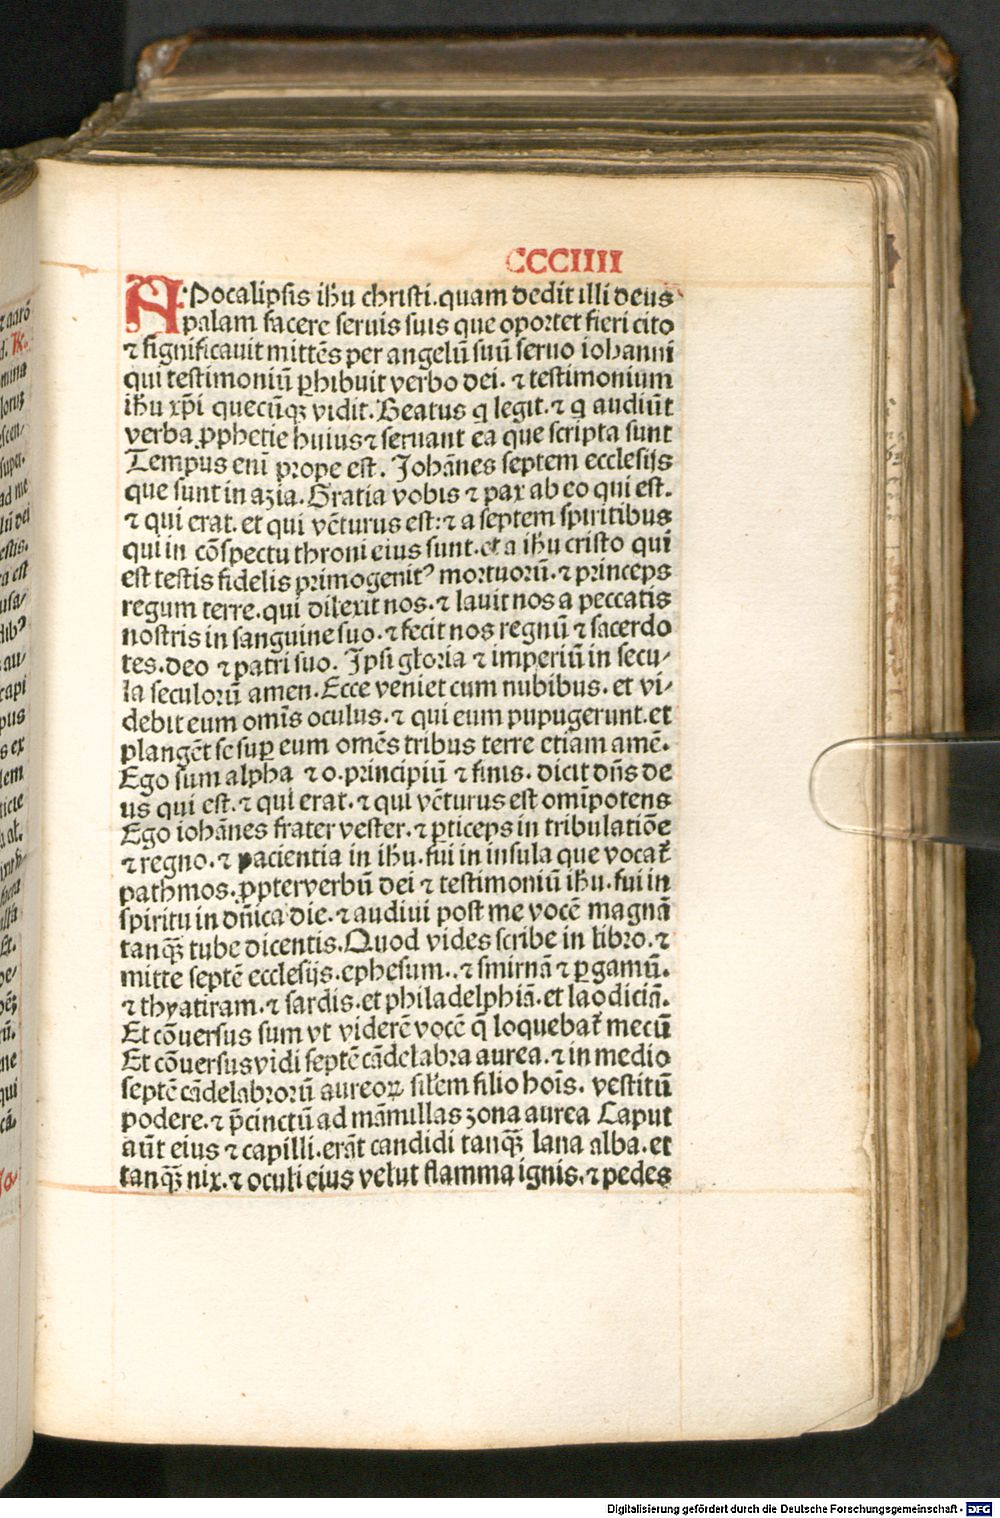 CCCIIII
APocalipsis ihu christi.quam dedit illi deus
palam facere seruis suis que oportet fieri cito
⁊ significauit mittẽs per angelũ suũ seruo iohanni
qui testimoniũ ꝑhibuit verbo dei. ⁊ testimonium
ihu xp̃i quecũqꝫ vidit. Beatus q legit.⁊ q audiũt
verba ꝓphetie huius ⁊ seruant ea que scripta sunt
Tempus eni prope est. Johãnes septem ecclesijs
que sunt in azia. Gratia vobis ⁊ pax ab eo qui est.
⁊ qui erat. et qui vẽturus est: ⁊ a septem spiritibus
qui in cõspectu throni eius sunt. et a ihu cristo qui
est testis fidelis primogenitꝰ mortuorũ. ⁊ princeps
regum terre. qui dilexit nos. ⁊ lauit nos a peccatis
nostris in sanguine suo. ⁊ fecit nos regnũ ⁊ sacerdo
tes. deo ⁊ patri suo. Ipsi gloria ⁊ imperiũ in secu⸗
la seculorũ amen. Ecce veniet cum nubibus. et vi⸗
debit eum omĩs oculus. ⁊ qui eum pupugerunt. et
plangẽt se suꝑ eum omẽs tribus terre etiam amẽ.
Ego sum alpha ⁊ o. principiũ ⁊ finis. dicit dñs de
us qui est. ⁊ qui erat. ⁊ qui vẽturus est omĩpotens
Ego iohãnes frater vester. ⁊ ꝑticeps in tribulatiõe
⁊ regno. ⁊ pacientia in ihu. fui in insula que vocat᷑
pathmos. ꝓpter verbũ dei ⁊ testimoniũ ihu. fui in
spiritu in dñica die. ⁊ audiui post me vocẽ magnã
tanqꝫ̃ tube dicentis. Quod vides scribe in libro. ⁊
mitte septẽ ecclesijs. ephesum.. ⁊ smirnã ⁊ ꝑgamũ.
⁊ thyatiram. ⁊ sardis. et philadelphiã. et laodiciã.
Et cõuersus sum vt viderẽ vocẽ q̃ loquebat᷑ mecũ
Et cõuersus vidi septẽ cãdelabra aurea. ⁊ in medio
septẽ cãdelabrorũ aureoꝝ silem filio hoĩs. vestitũ
podere. ⁊ p̃cinctũ ad mãmillas zona aurea Caput
aũt eius ⁊ capilli. erãt candidi tanqꝫ̃ lana alba. et
tanqꝫ̃ nix. ⁊ oculi eius velut flamma ignis. ⁊ pedes
Digitalisierung gefördert durch die Deutsche Forschungsgemeinschaft - DFG